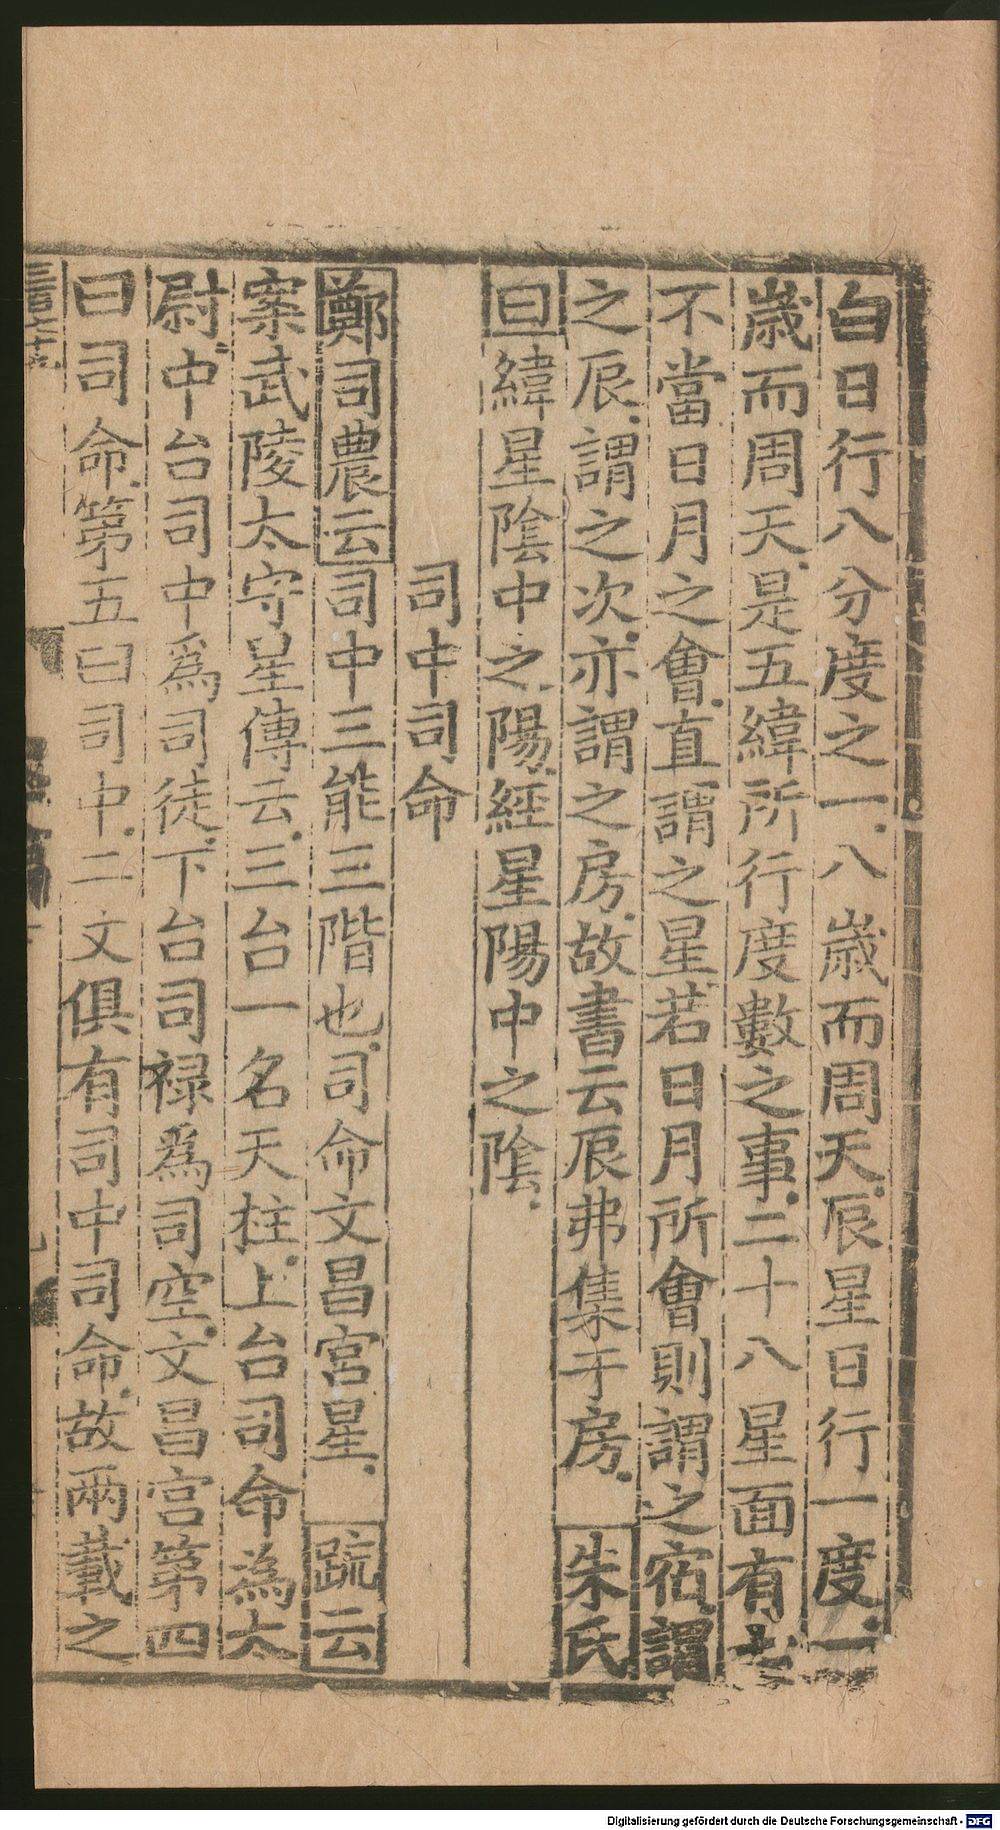 白日行八分度之一八歲而周天辰星日行一度一
歲而周天是五緯所行度數之事二十八星面有七
不當日月之會直謂之星若日月所會則謂之宿謂
之辰謂之次亦謂之房故書云辰弗集于房朱氏
曰緯星陰中之陽經星陽中之陰
司中司命
鄭司農云司中三能三階也司命文昌宮星䟽云
案武陵太守星傳云三台一名天柱上台司命為太
尉中台司中爲司徒下台司禄爲司空文昌宫第四
曰司命第五曰司中二文俱有司中司命故兩載之
Digitalisierung gefördert durch die Deutsche Forschungsgemeinschaft - DFG